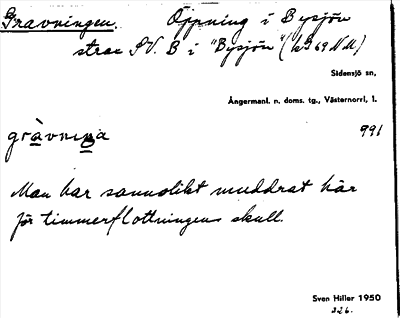 Gravningen. Öppning i Bysjön
strax SV. B i "Bysjön" (kB 69 NM)
Sidensjö sn,
Ångermanl. n. doms. tg., Västernorrl, l.
gràvnina 991
Man har sannolikt muddrat här
för timmerflottningens skull.
Sven Hiller 1950
326.